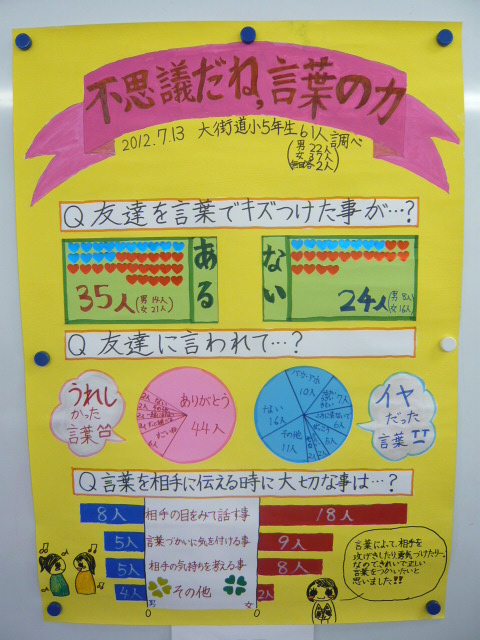 不思議だね,言葉の力
2012.7.13 大街道小5年生61人調べ
(男 22人
女 37人
無回答 2人)
Q 友達を言葉でキズつけた事が…?
ある
35人(男 14人
女 21人)
ない
24人(男 8人
女 16人)
Q 友達に言われて…?
うれし
かった
言葉
ありがとう
44人
6人
イヤ
だった
言葉
10人
7人
6人
8人
ない
16人
その他
11人
Q 言葉を相手に伝える時に大切な事は…?
8人 相手の目をみて話す事 18人
5人 言葉づかいに気を付ける事 9人
5人 相手の気持ちを考える事 8人
4人 その他 2人
男 女
言葉によって、相手を
攻げきしたり、勇気づけたり…。
なのできれいで正しい
言葉をつかいたいと
思いました!!